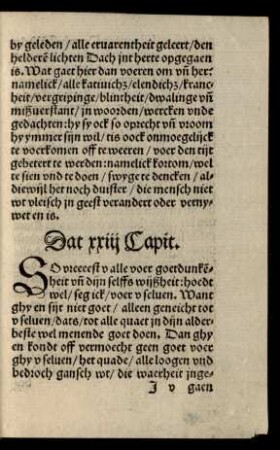 by geleden / alle eruarentheit geleert / den
helderẽ lichten Dach jnt herte opgegaen
is. Wat gaet hier dan voeren om vñ her:
namelick / alle katiuichz / elendichz / kranc-
heit / vergripinge / blintheit / dwalinge vñ
mißuerstant / jn woorden / wercken vnde
gedachten: hy sy ock so oprecht vñ vroom
hy ymmer sijn wil / tis oock onmoegelijck
te voerkomen off te weeren / voer den tijt
gebetert te werden: namelick kortom / wel
te sien vnd te doen / swyge te dencken / al-
diewijl het noch duister / die mensch niet
wt vleisch jn geest verandert oder verny-
wet en is.
Dat xxiij Capit.
SO vreeest v alle voer goetdunkẽ-
heit vñ dijn selffs wijßheit: hoedt
wel / seg ick / voer v seluen. Want
ghy en sijt niet goet / alleen geneicht tot
v seluen / dats / tot alle quaet jn dijn alder-
beste wel menende goet doen. Dan ghy
en kondt off vermoecht geen goet voer
ghy v seluen / het quade / alle loogen vnd
bedroch gansch wt / die waerheit jnge-
J v gaen